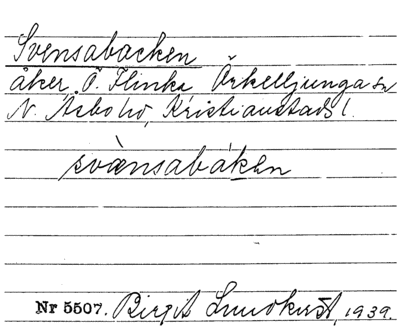 Svensabacken
åker, Ö. Flinka Örkelljunga sn
N. Åsbo hd, Kristianstads l.
svä̀nsabákən
Nr 5507. Birgit Lundkvist, 1939.